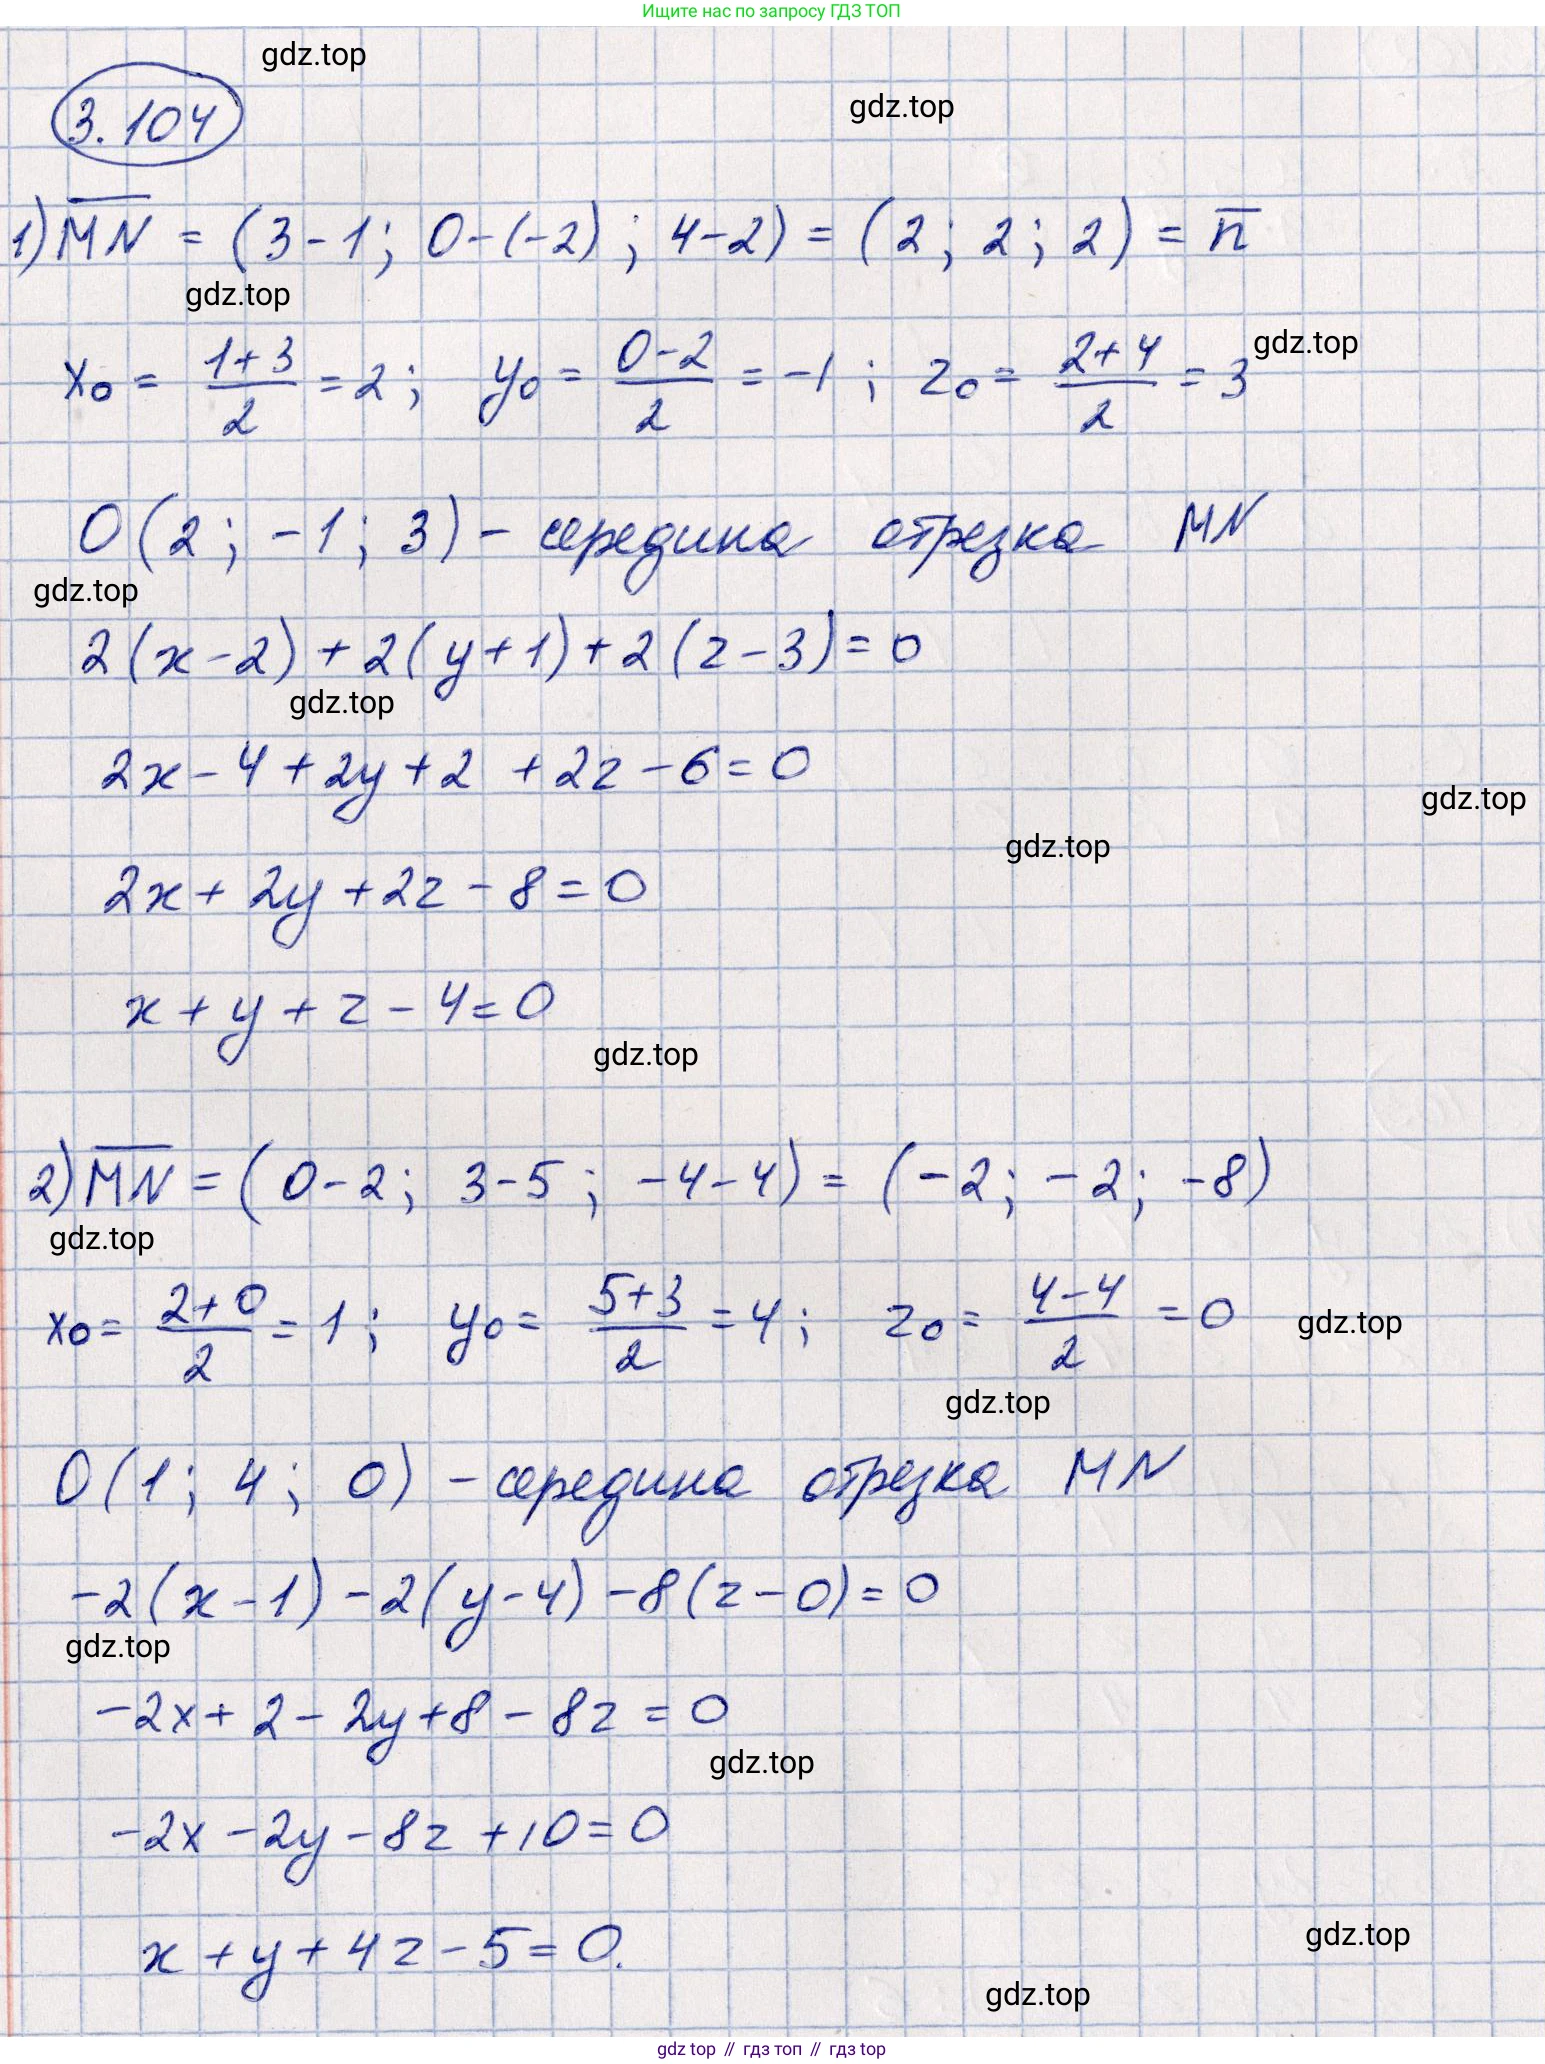 Ищите нас по запросу ГДЗ ТОП
gdz.top
gdz.top
3.104
1) \overline{MN} = (3-1; 0-(-2); 4-2) = (2; 2; 2) = \overline{n}
gdz.top
x₀ = \frac{1+3}{2} = 2; y₀ = \frac{0-2}{2} = -1; z₀ = \frac{2+4}{2} = 3
gdz.top
O(2; -1; 3) - середина отрезка MN
gdz.top
2(x-2)+2(y+1)+2(z-3)=0
gdz.top
2x-4+2y+2+2z-6=0
gdz.top
gdz.top
2x+2y+2z-8=0
x+y+z-4=0
gdz.top
2) \overline{MN} = (0-2; 3-5; -4-4) = (-2; -2; -8)
gdz.top
x₀ = \frac{2+0}{2} = 1; y₀ = \frac{5+3}{2} = 4; z₀ = \frac{4-4}{2} = 0
gdz.top
gdz.top
O(1; 4; 0) - середина отрезка MN
-2(x-1)-2(y-4)-8(z-0)=0
gdz.top
-2x+2-2y+8-8z=0
gdz.top
-2x-2y-8z+10=0
x+y+4z-5=0.
gdz.top
gdz.top
gdz top // гдз топ // гдз top